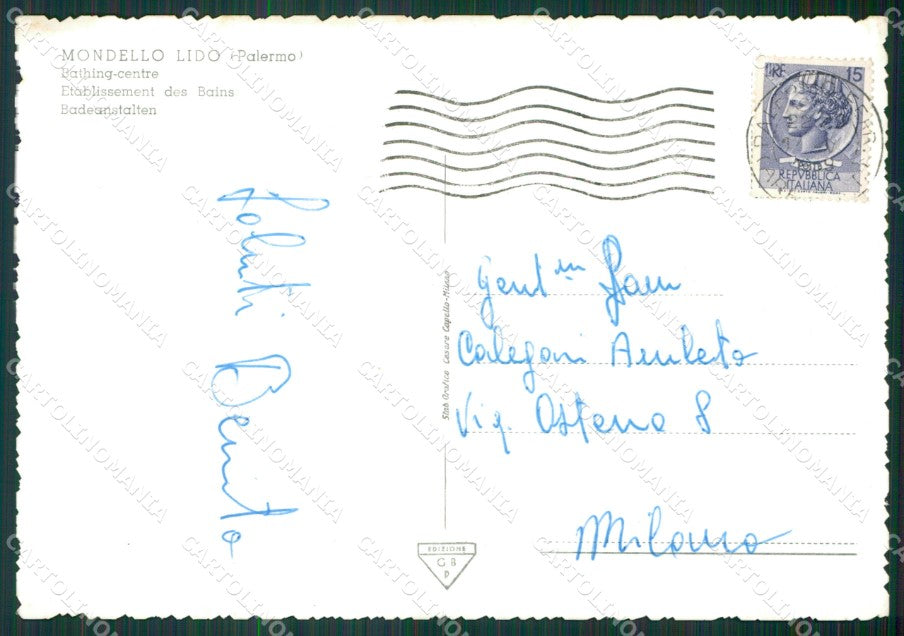 MONDELLO LIDO (Palermo)
Bathing-centre
Etablissement des Bains
Badeanstalten
LIRE 15
REPVBBLICA
ITALIANA
Saluti
Benito
Stab. Grafico Cesare Capello-Milano
Gent.ma Fam
Calegari Amleto
Via Osteno 8
Milano
EDIZIONE
G B
P
CARTOLINOMANIA